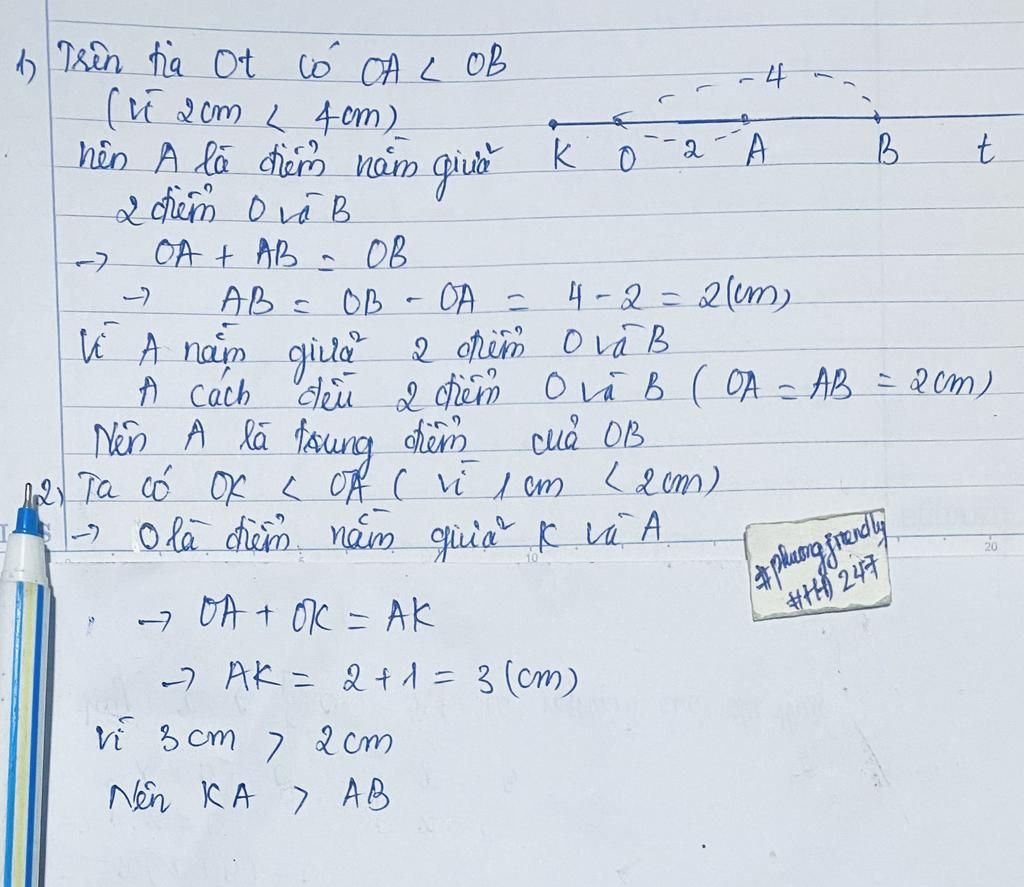 1) Trên tia Ot có OA < OB
(Vì 2cm < 4cm)
nên A là điểm nằm giữa
2 điểm O và B
→ OA + AB = OB
→ AB = OB - OA = 4 - 2 = 2(cm)
Vì A nằm giữa 2 điểm O và B
A cách đều 2 điểm O và B ( OA = AB = 2cm)
Nên A là trung điểm của OB
4
2
K O A B t
2) Ta có OK < OA ( vì 1cm < 2cm)
→ O là điểm nằm giữa K và A
→ OA + OK = AK
→ AK = 2 + 1 = 3 (cm)
Vì 3cm > 2cm
Nên KA > AB
#phuongfriendly
247
10
20